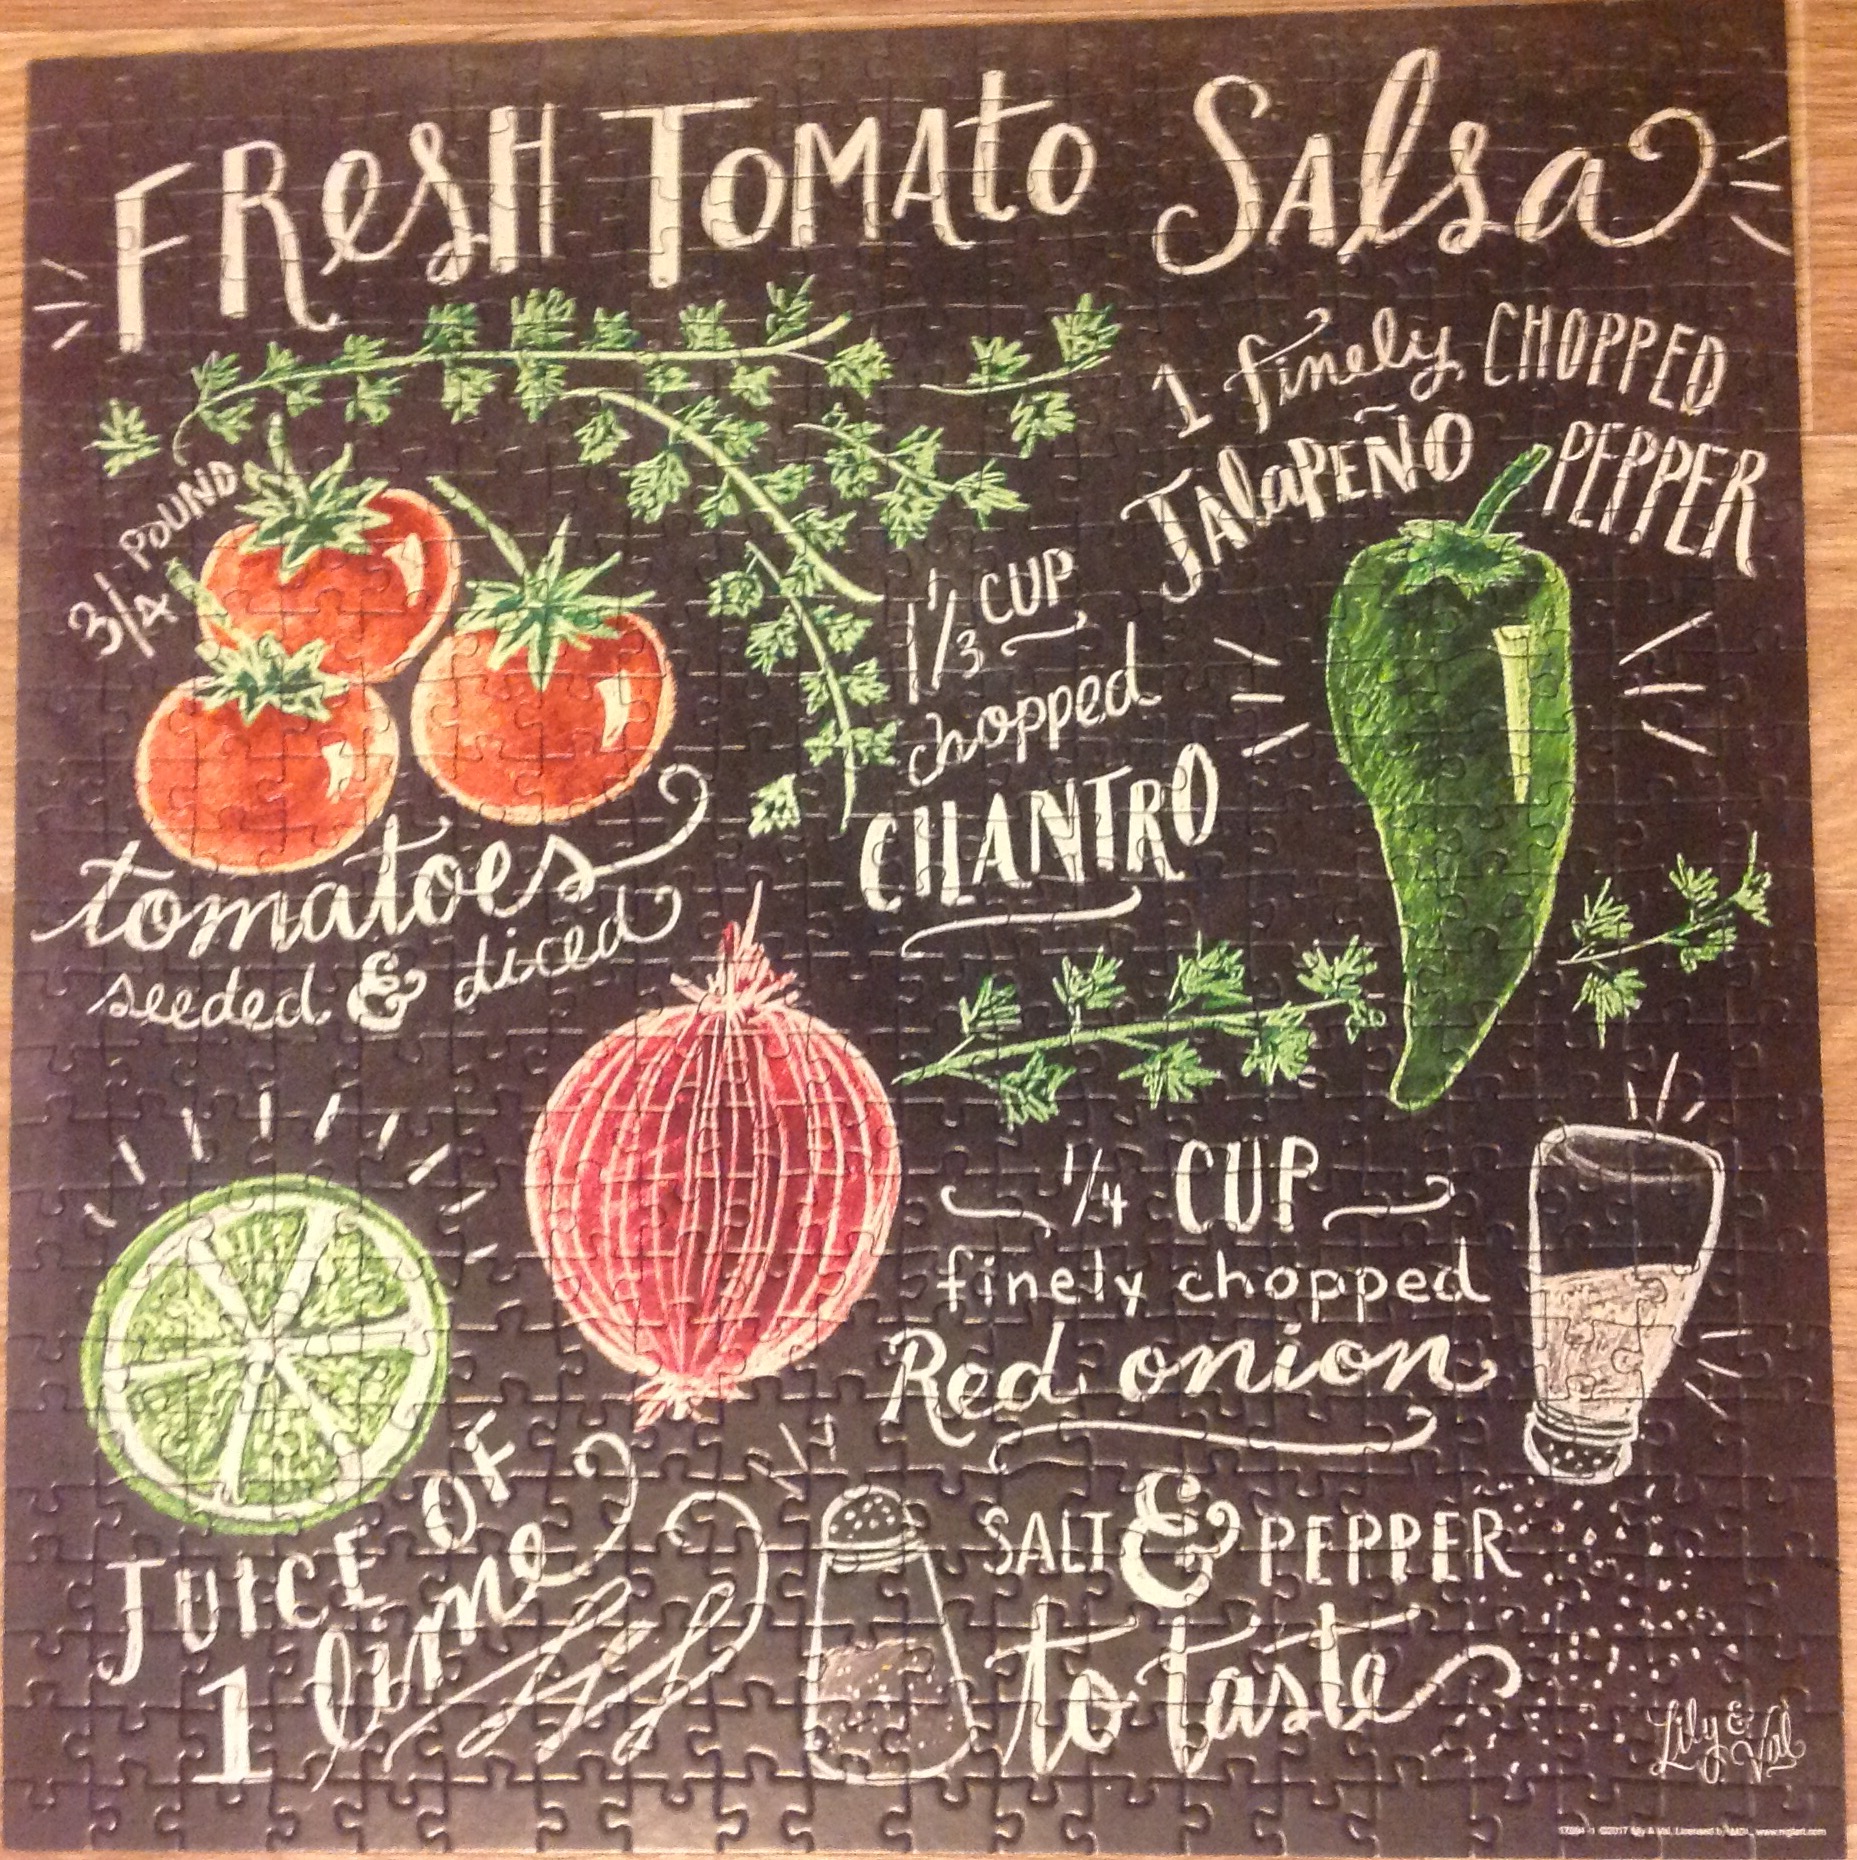 FResH TOMAto SAlsa
1 finely CHOPPED
JAlaPEÑO PEPPER
3/4 POUND
tomatoes
seeded & diced
1 1/3 CUP
chopped
CILANTRO
1/4 CUP
finely chopped
Red onion
JUICE OF
1 lime
SALT & PEPPER
to taste
Lily & Val
©2017 Lily & Val, Licensed by